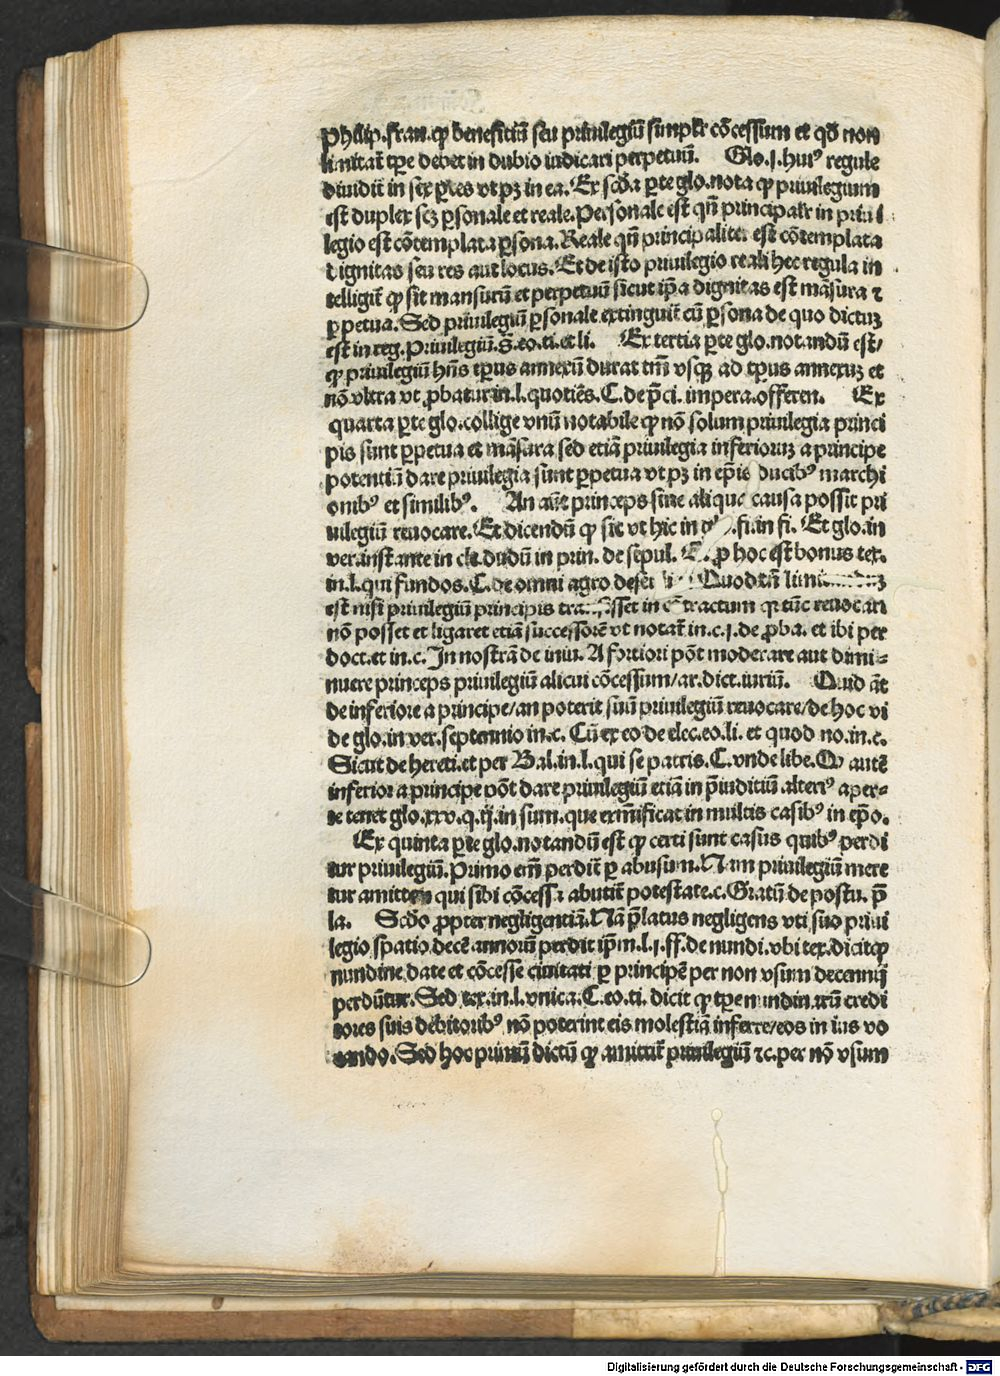 Philip. fran. ꝙ beneficiū seu priuilegiū simplr̄ cōcessum et qđ non
limitat̄ tꝑe debet in dubio iudicari perpetuū. Glo. j. huiꝰ regule
diuidit̄ in sex ꝑtes vt pꝫ in ea. Ex scd̄a ꝑte glo. nota ꝙ priuilegium
est duplex scꝫ ꝑsonale et reale. Personale est qn̄ principalr̄ in priui
legio est cōtemplata ꝑsona. Reale qn̄ principaliter est cōtemplata
dignitas seu res aut locus. Et de isto priuilegio reali hec regula in
telligit̄ ꝙ sit mansurū et perpetuū sicut ip̄a dignitas est māsura ⁊
ꝑpetua. Sed priuilegiū ꝑsonale extinguit̄ cū ꝑsona de quo dictuꝫ
est in reg. Priuilegiū. s̄. eo. ti. et li. Ex tertia ꝑte glo. notandū est/
ꝙ priuilegiū hn̄s tp̄us annexū durat tm̄ vsqꝫ ad tp̄us annexuꝫ et
nō vltra vt ꝓbatur in. l. quotiēs. C. de p̄ci. impera. offeren. Ex
quarta ꝑte glo. collige vnū notabile ꝙ nō solum priuilegia princi
pis sunt ꝑpetua et māsura sed etiā priuilegia inferioruꝫ a principe
potentiū dare priuilegia sunt ꝑpetua vt pꝫ in ep̄is ducibꝰ marchi
onibꝰ et similibꝰ. An aūt princeps sine aliqua causa possit pri
uilegiū reuocare. Et dicendū ꝙ sic vt hic in fi. in fi. Et glo. in
ver. instante in cle. dudū in prin. de sepul. ꝓ hoc est bonus tex.
in. l. qui fundos. C. de omni agro deser Quod tn̄
est nisi priuilegiū principis transisset in cōtractum qꝛ tūc reuocari
nō posset et ligaret etiā successorē vt notat̄ in. c. j. de ꝓba. et ibi per
doct. et in. c. In nostra de iniu. A fortiori pōt moderare aut dimi-
nuere princeps priuilegiū alicui cōcessum/ar. dict. iuriū. Quid āt
de inferiore a principe/an poterit suū priuilegiū reuocare/de hoc vi
de glo. in ver. septennio in. c. Cū ex eo de elec. eo. li. et quod no. in. c.
Sicut de hereti. et per Bal. in. l. qui se patris. C. vnde libe. Q autē
inferior a principe pōt dare priuilegiū etiā in p̄iuditiū alterꝰ aper-
te tenet glo. xxv. q. ij. in sum. que exm̄ificat in multis casibꝰ in ep̄o.
Ex quinta ꝑte glo. notandū est ꝙ certi sunt casus quibꝰ perdi
tur priuilegiū. Primo em̄ perdit̄ ꝑ abusum. Nam priuilegiū mere
tur amittere qui sibi cōcessa abutit̄ potestate. c. Gratū de postu. p̄
la. Scd̄o ꝓpter negligentiā. Nā p̄latus negligens vti suo priui
legio spatio decē annorū perdit ip̄m. l. j. ff. de nundi. vbi tex. dicit ꝙ
nundine date et cōcesse ciuitati ꝑ principē per non vsum decennij
perdūtur. Sed tex. in. l. vnica. C. eo. ti. dicit ꝙ tꝑe nundinarū credi
tores suis debitoribꝰ nō poterint eis molestiā inferre/eos in ius vo
cando. Sed hoc primū dictū ꝙ amittit̄ priuilegiū ⁊c. per nō vsum
Digitalisierung gefördert durch die Deutsche Forschungsgemeinschaft - DFG